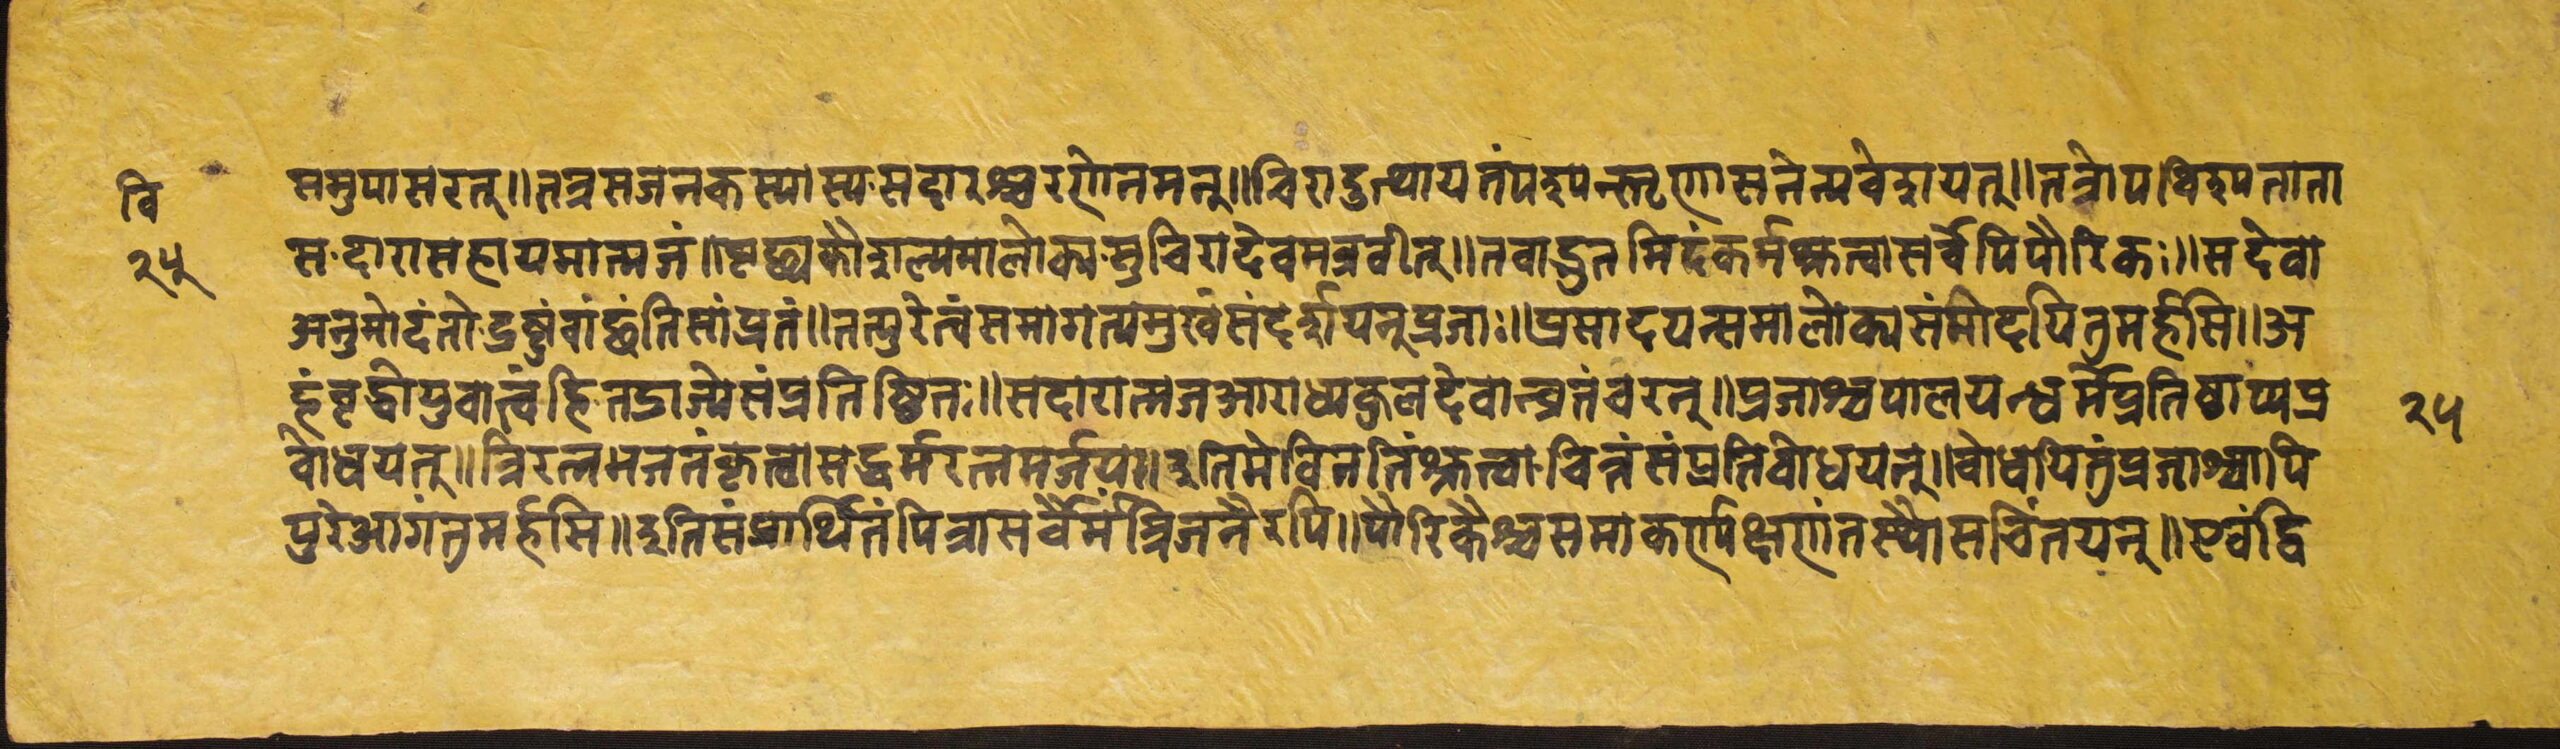 वि
२५
समुपासरत्॥तत्रसजनकस्यास्य·सदारश्चरणेनमन्॥चिरादुत्थायतंपश्यन्स्तृणासनेन्यवेशयत्॥तत्रोपविश्यताता
स·दारासहायमात्मजं॥पृष्ट्वाकौशल्यमालोक्य·सुचिरादेवमब्रवीत्॥तवाद्भुतमिदंकर्मश्रुत्वासर्वेपिपौरिकः॥सदेवा
अनुमोदंतो·द्रष्टुंवांछंतिसांप्रतं॥तत्पुरेत्वंसमागत्यमुखंसंदर्शयन्प्रजाः॥प्रसादयन्समालोक्यसंमोदयितुमर्हसि॥अ
हंवृद्धोयुवात्वंहि·तद्राज्येसंप्रतिष्ठितः॥सदारात्मजआराध्यकुलदेवान्व्रतंचरन्॥प्रजाश्चपालयन्धर्मेप्रतिष्ठाप्यप्र
२५
बोधयन्॥त्रिरत्नभजनंकृत्वासद्धर्मरत्नमर्जय॥इतिमेविनतिंश्रुत्वा·चित्तंसंप्रतिबोधयन्॥बोधयितुंप्रजाश्चापि
पुरेआगंतुमर्हसि॥इतिसंप्रार्थितंपित्रासर्वैर्मंत्रिजनैरपि॥पौरिकैश्चसमाकर्ण्यक्षणंतस्थौसचिंतयन्॥एवंद्वि